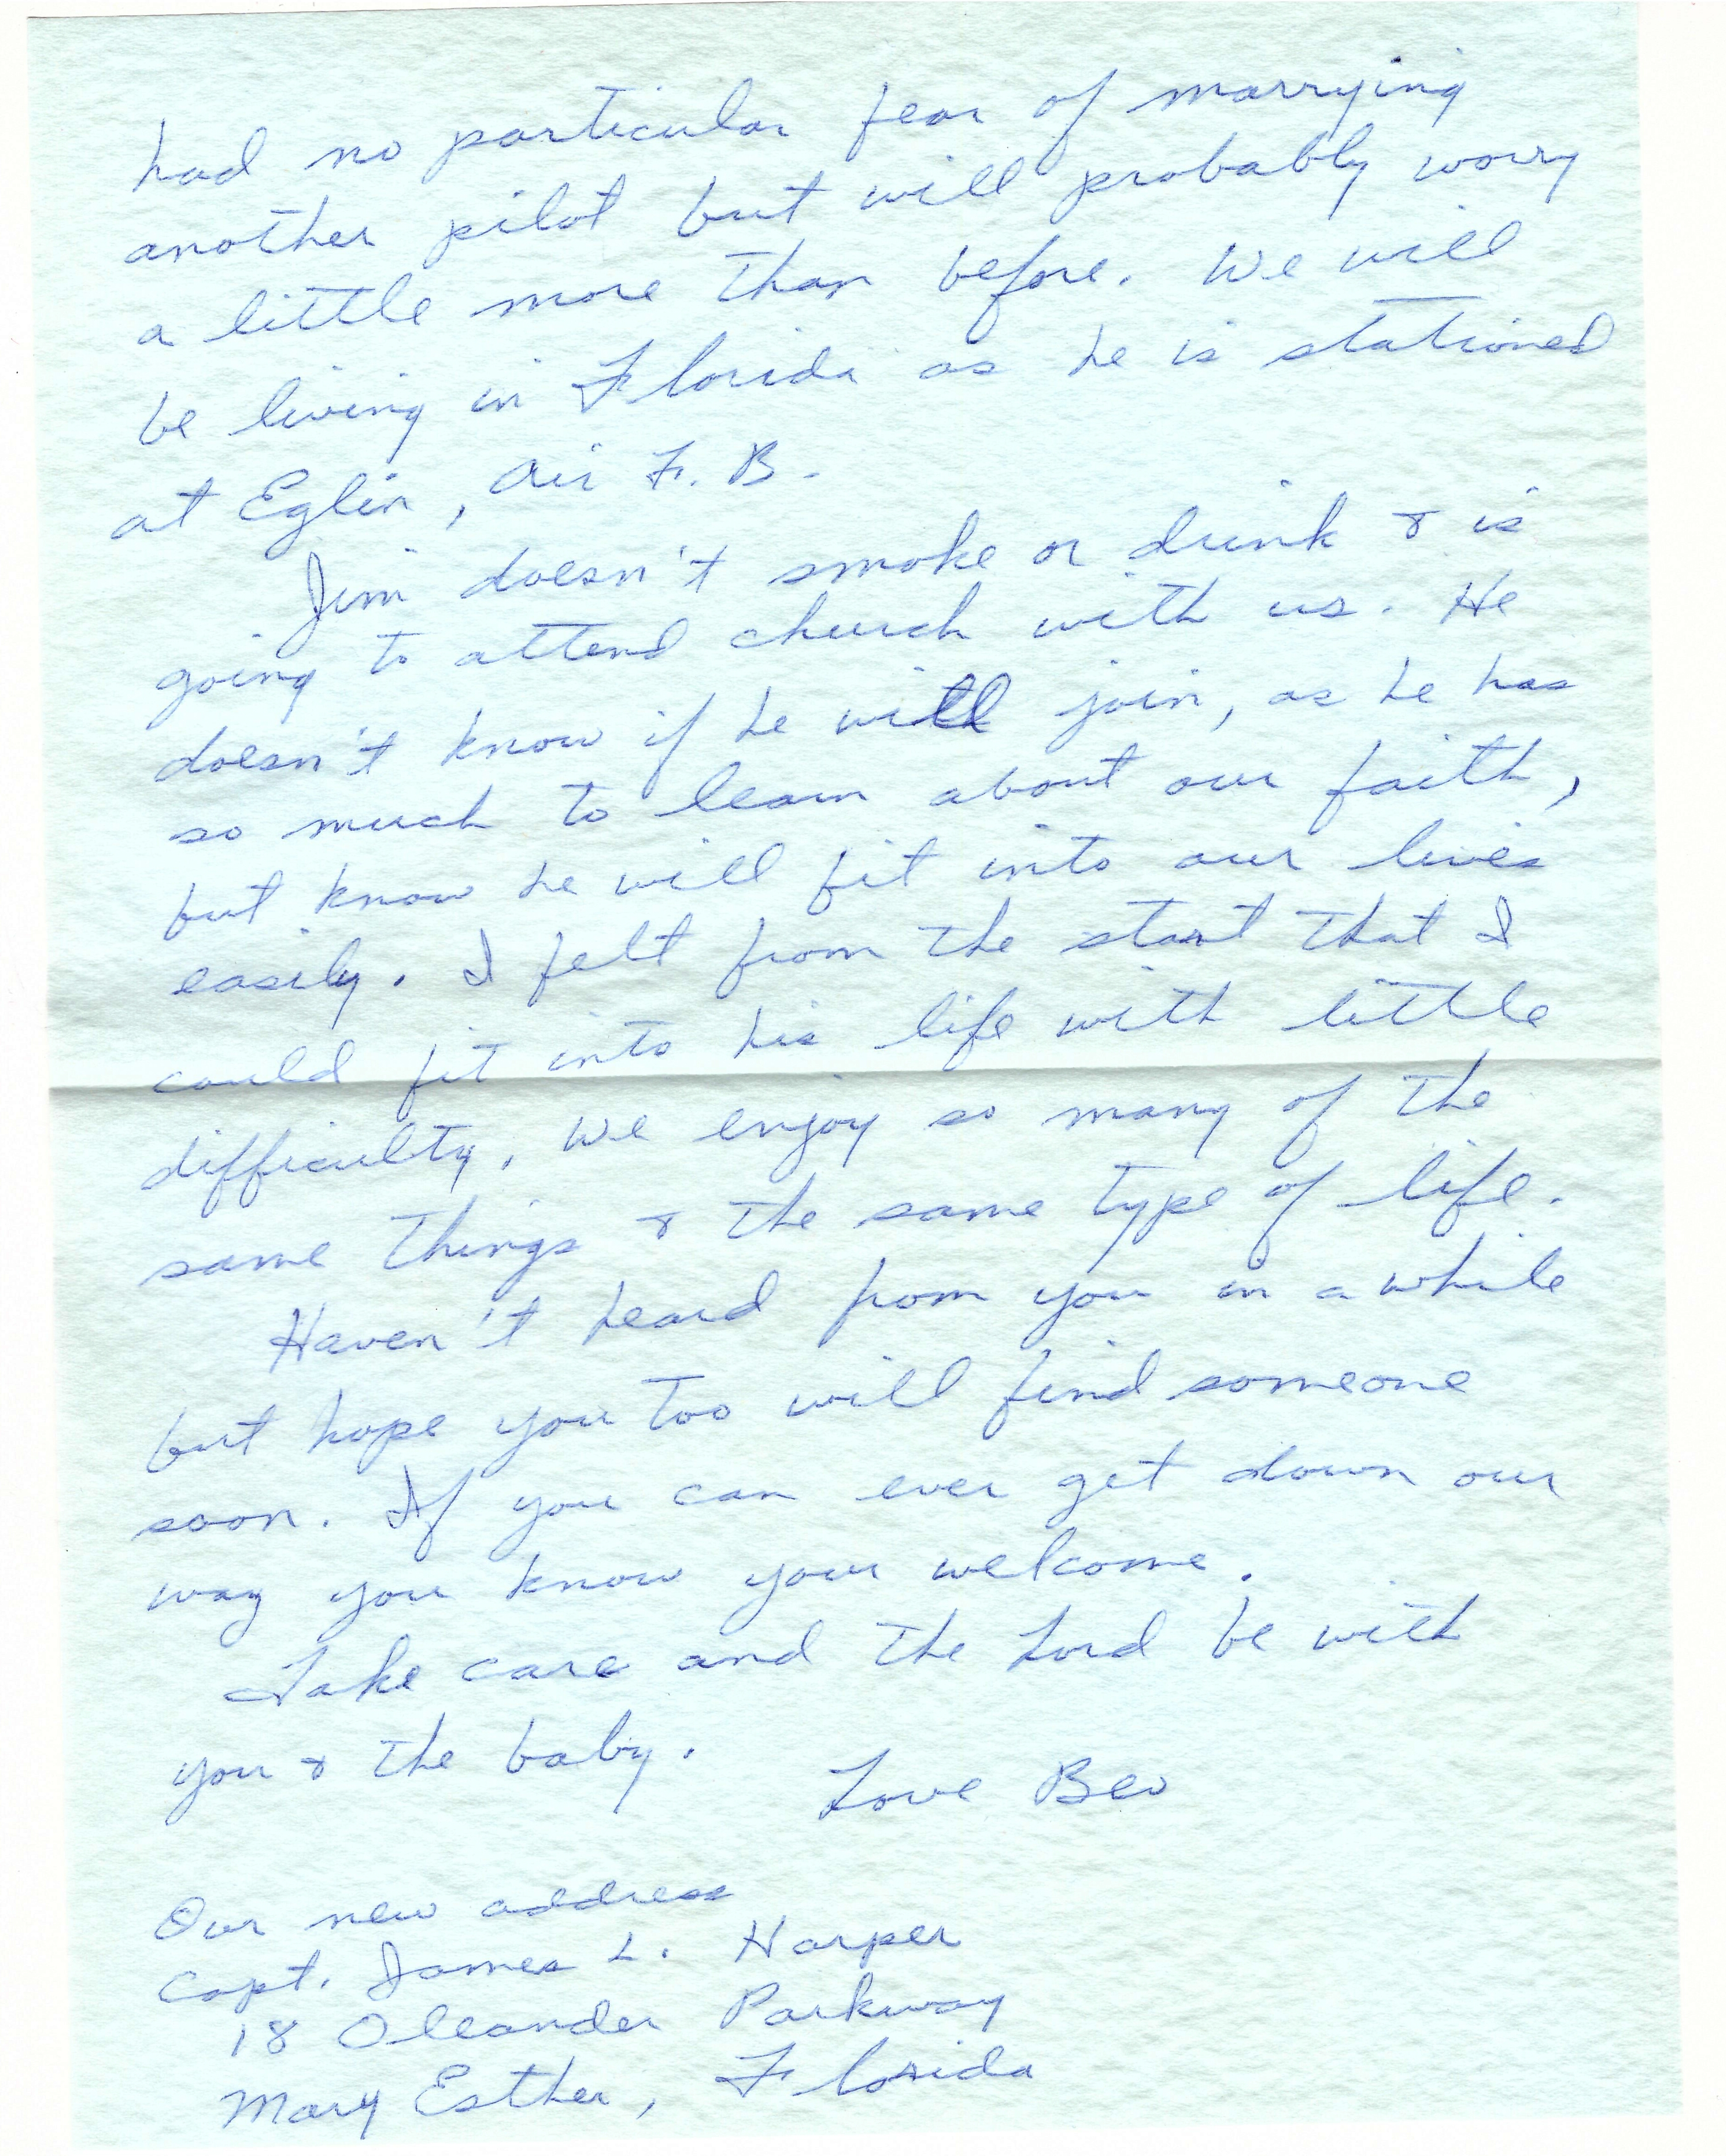 had no particular fear of marrying
another pilot but will probably worry
a little more than before. We will
be living in Florida as he is stationed
at Eglin, Air F. B.
Jim doesn't smoke or drink & is
going to attend church with us. He
doesn't know if he will join, as he has
so much to learn about our faith,
but know he will fit into our lives
easily. I felt from the start that I
could fit into his life with little
difficulty. We enjoy so many of the
same things & the same type of life.
Haven't heard from you in a while
but hope you too will find someone
soon. If you can ever get down our
way you know your welcome.
Take care and the Lord be with
you & the baby.
Love Bev
Our new address
Capt. James L. Harper
18 Oleander Parkway
Mary Esther, Florida